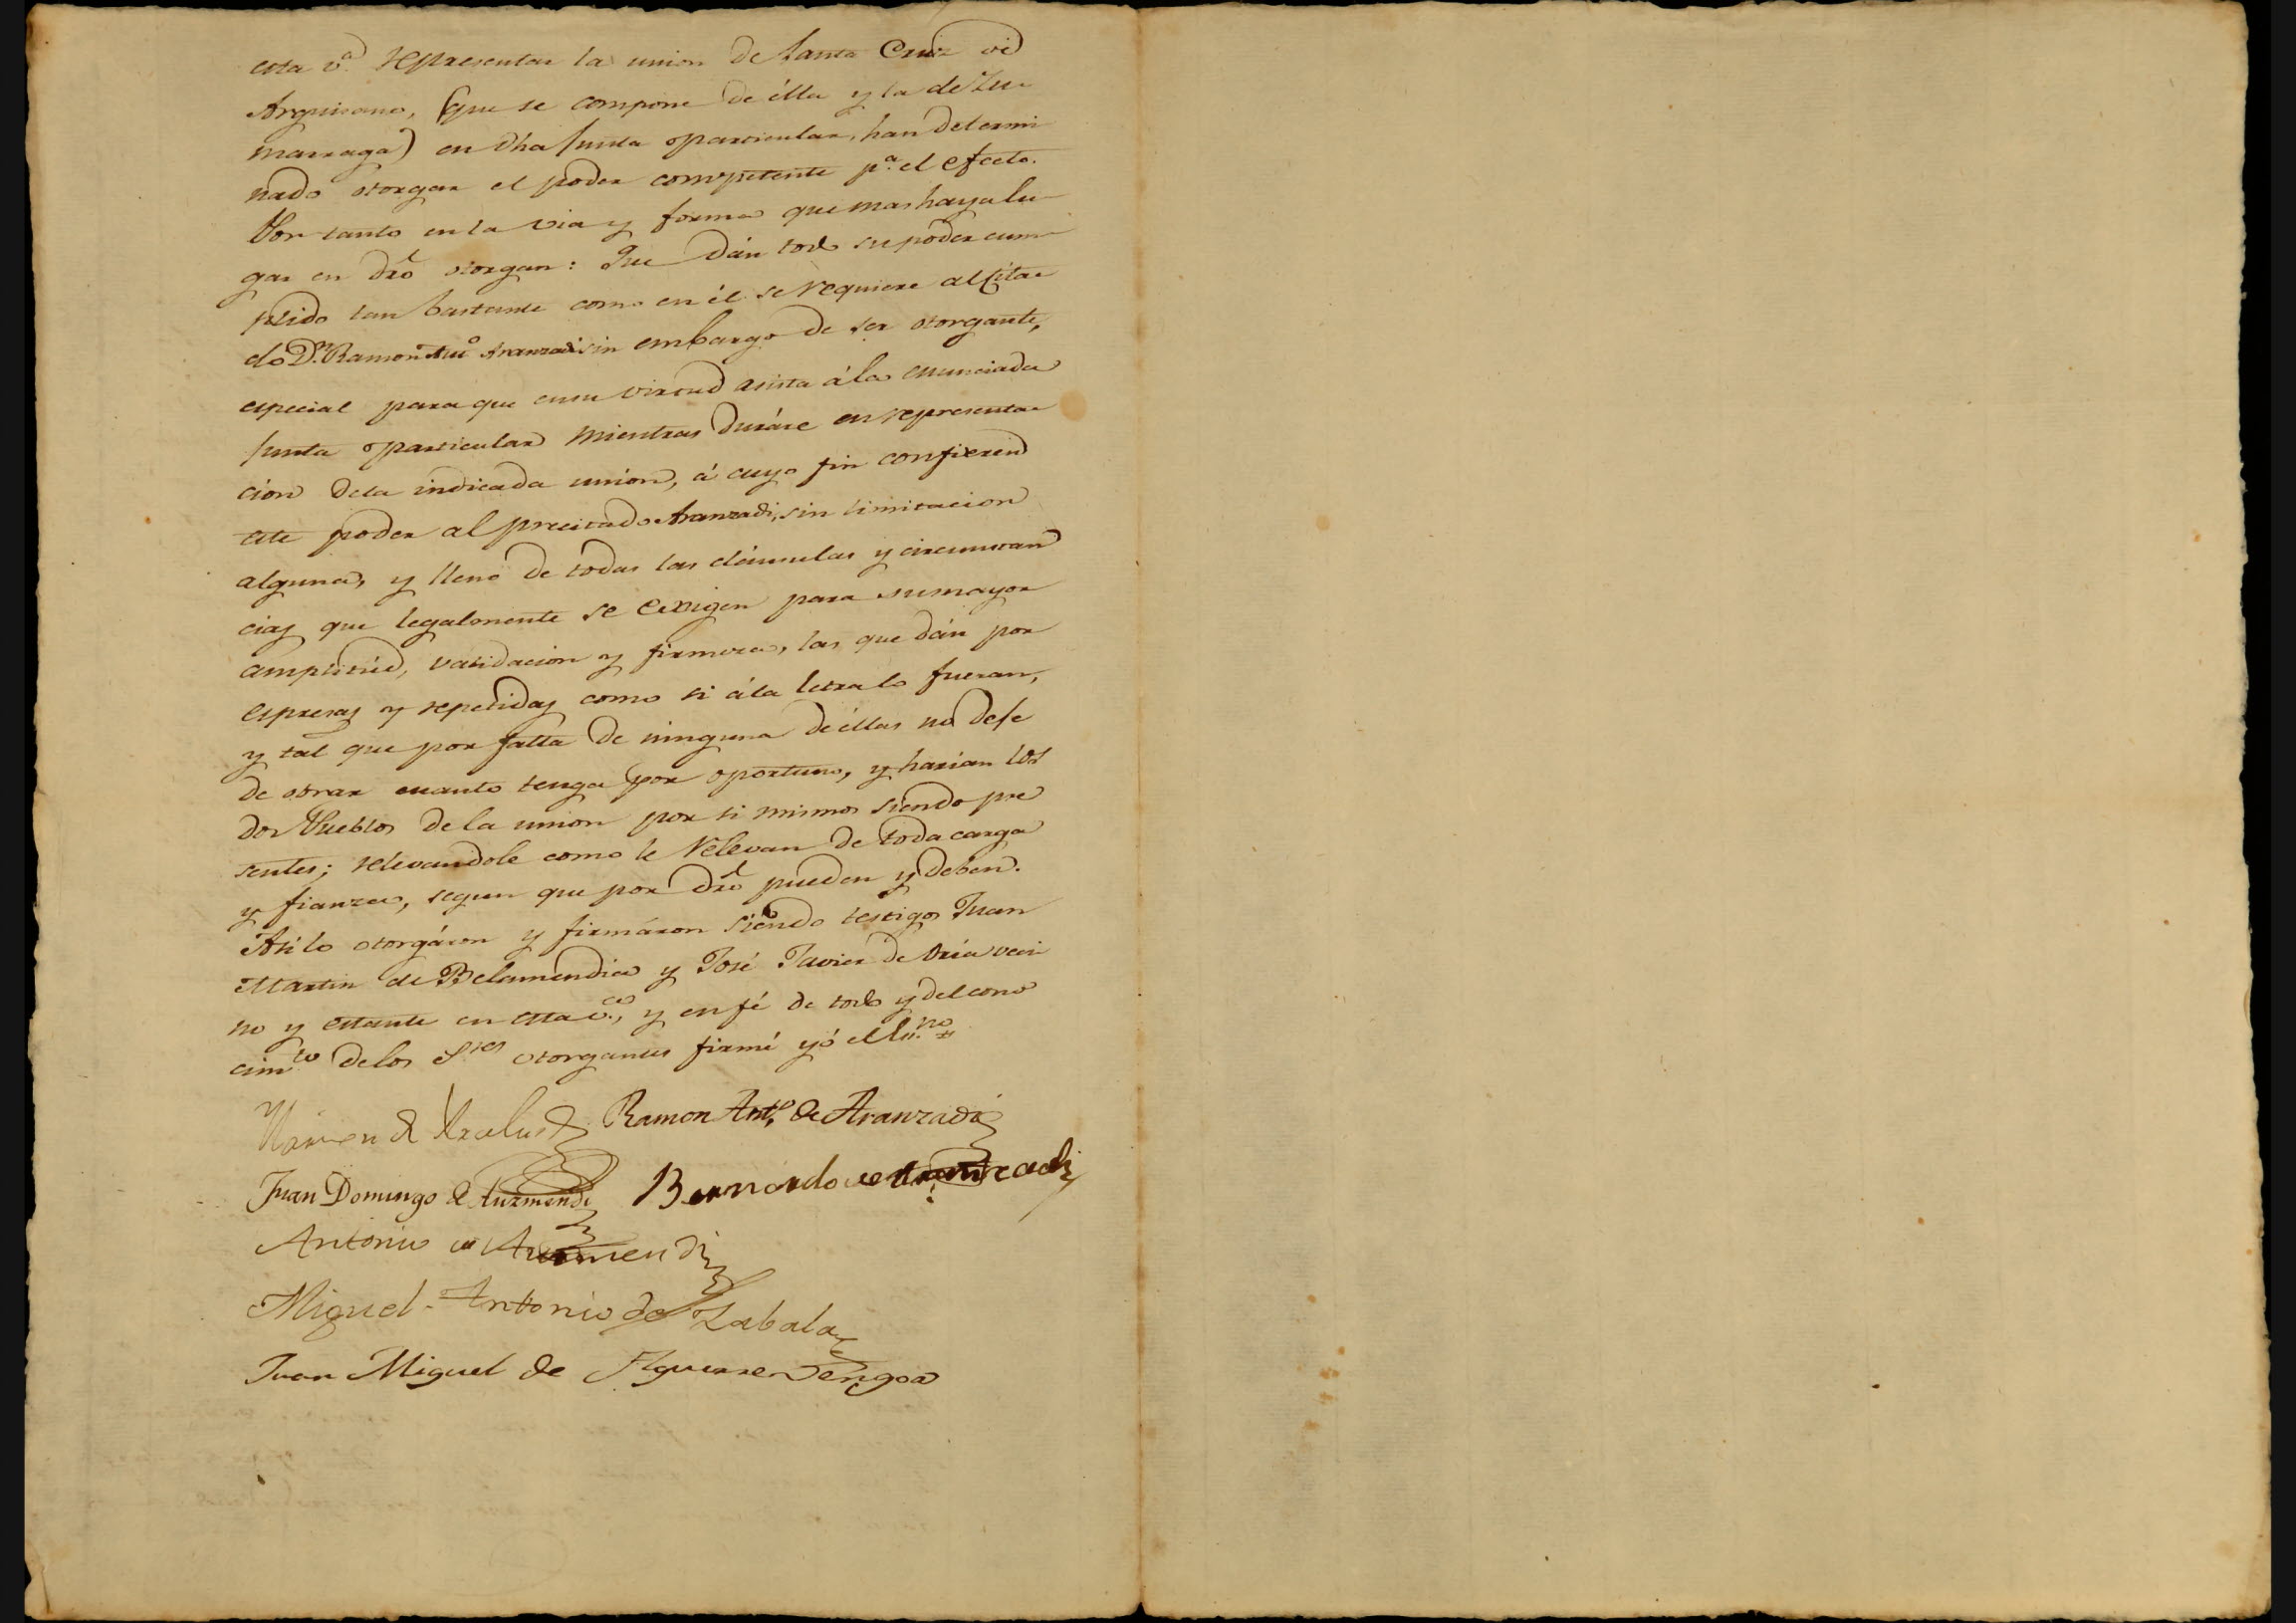 esta v.ª representar la union de Santa Cruz de
Arguisano, (que se compone de élla y la de Zu-
marraga) en dha Junta particular, han determi
nado otorgar el poder competente p.ª el efecto.
Por tanto en la via y forma que mas haya lu-
gar en dro otorgan: Que dán todo su poder cum-
plido tan bastante como en él se requiere al cita-
do D.n Ramon Ant.o Aranzadi sin embargo de ser otorgante,
especial para que en su virtud asista á la enunciada
Junta particular mientras duráre en representa-
cion de la indicada union, á cuyo fin confieren
este poder al precitado Aranzadi, sin limitacion
alguna, y lleno de todas las cláusulas y circunstan
cias que legalmente se exigen para su mayor
amplitúd, validacion y firmeza, las que dán por
espresas y repetidas como si á la letra lo fueran,
y tal que por falta de ninguna de éllas no deje
de obrar cuanto tenga por oportuno, y harian los
dos Pueblos de la union por si mismos siendo pre
sentes; relevandole como le relevan de toda carga
y fianza, segun que por dro pueden y deben.
Asi lo otorgáron y firmáron siendo testigos Juan
Martin de Belamendia y José Javier de Oria veci
no y estante en esta v.ª, y en fé de todo y del cono
cim.to de los S.res otorgantes firmé yó el Es.no
Ramon Ant.o de Aranzadi
Juan Domingo de Auzmendi Bernardo de Aranzadi
Antonio de Auzmendi
Miguel Antonio de Zabala
Juan Miguel de Aguirre Bengoa